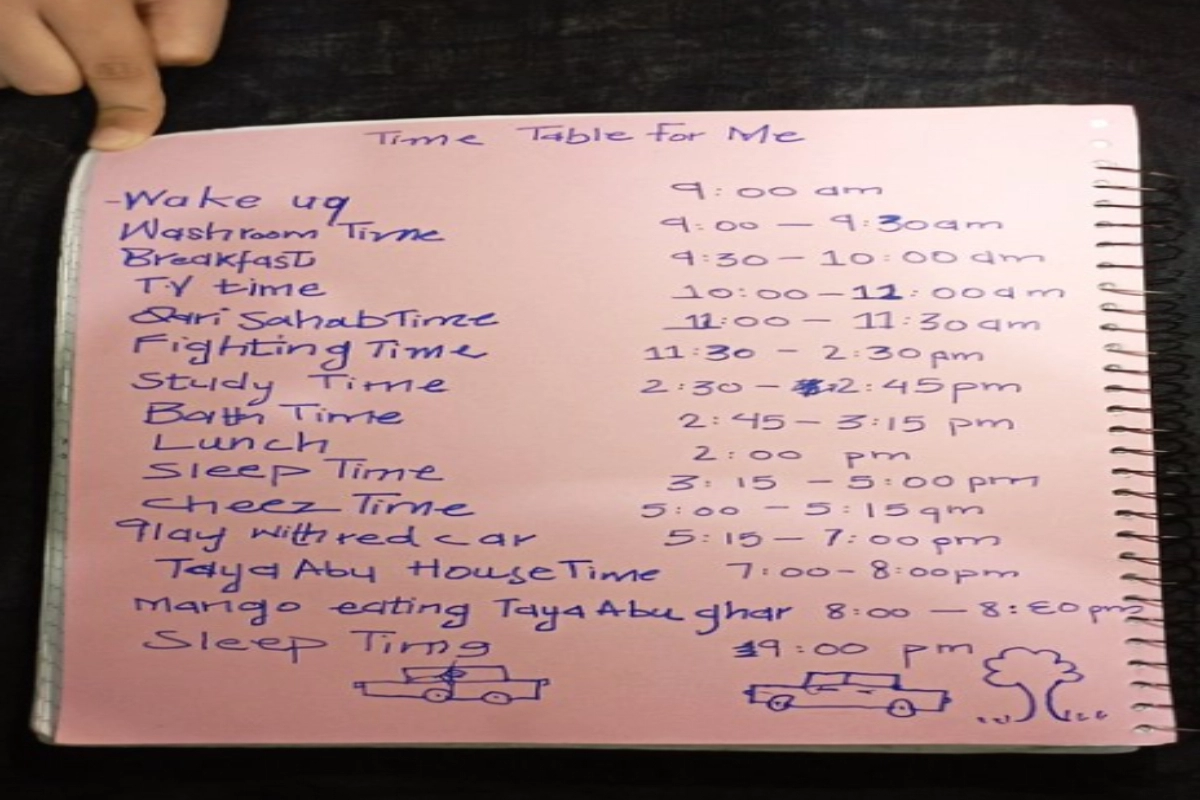 Time Table for Me
-Wake uq 9:00 am
Washroom Time 9:00 - 9:30am
Breakfast 9:30 - 10:00 am
T.V time 10:00 - 11:00am
Qari Sahab Time 11:00 - 11:30am
Fighting Time 11:30 - 2:30pm
Study Time 2:30 - 2:45pm
Bath Time 2:45 - 3:15 pm
Lunch 2:00 pm
Sleep Time 3:15 - 5:00pm
Cheez Time 5:00 - 5:15qm
qlay with red car 5:15 - 7:00pm
Taya Abu House Time 7:00 - 8:00pm
Mango eating Taya Abu ghar 8:00 - 8:30pm
Sleep Time 9:00 pm